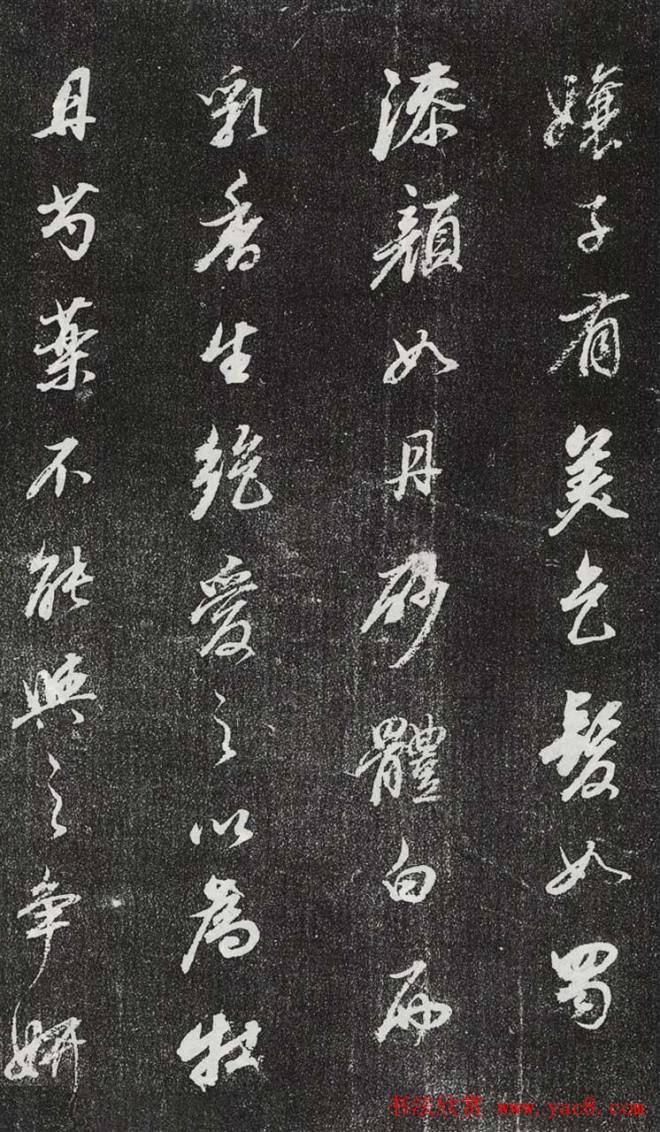 孃子有美色髮如蜀
漆顏如丹砂體白而
乳香生絶愛之以為牡
丹芍藥不能與之爭妍
书法欣赏 www.yac8.com